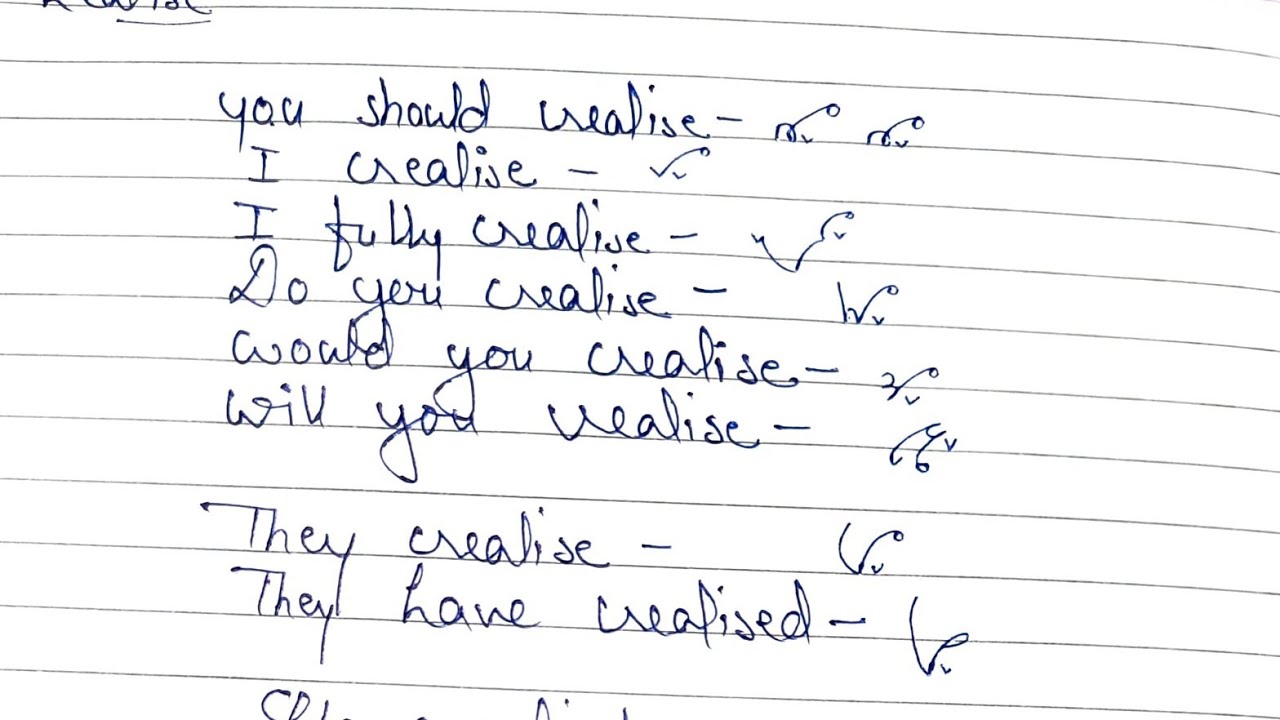 you should realise -
I realise -
I fully realise -
Do you realise -
would you realise -
will you realise -
They realise -
They have realised -